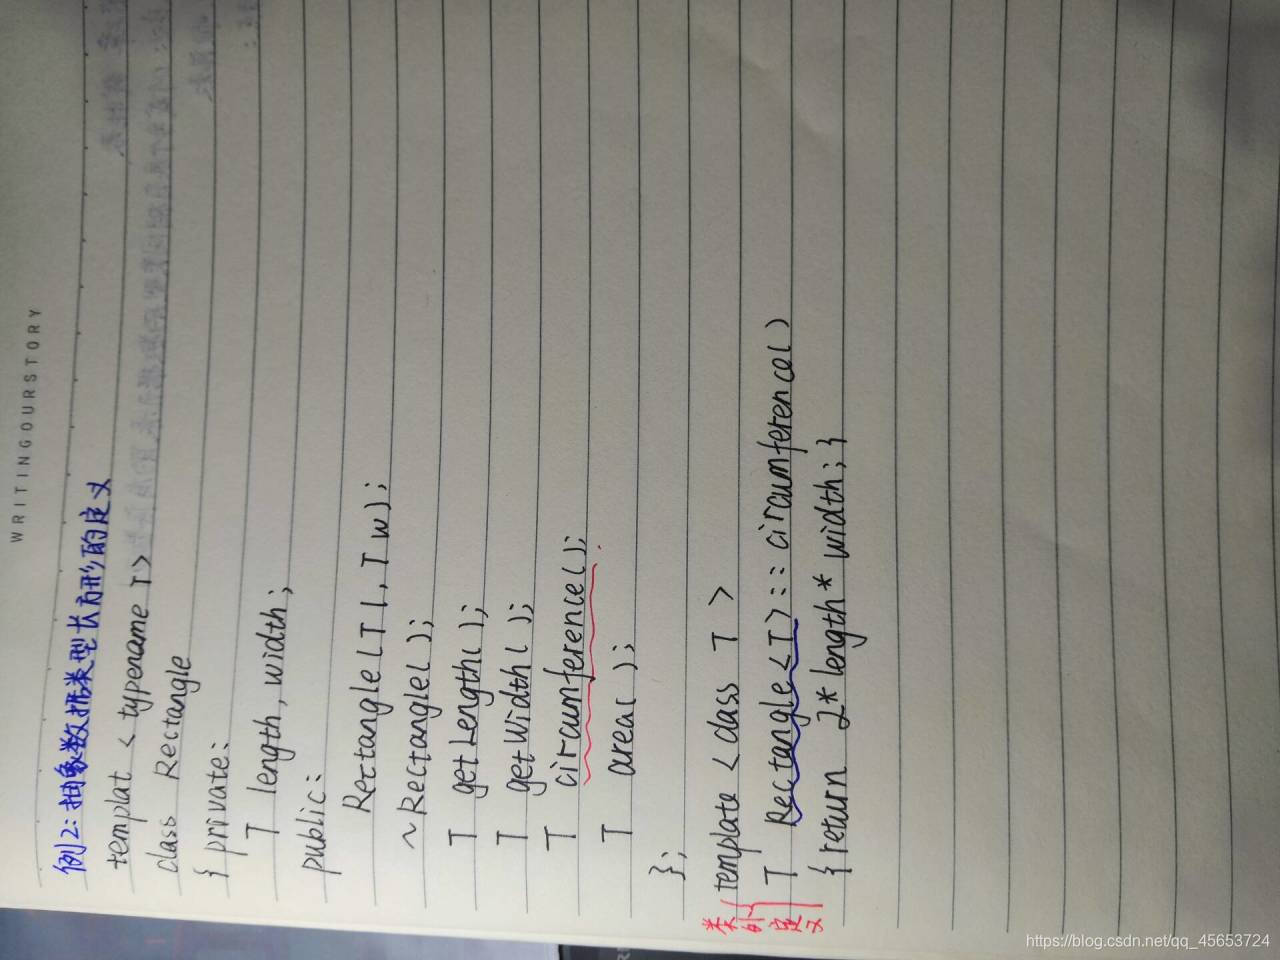 WRITINGOURSTORY
例2:抽象数据类型长方形的定义
templat < typename T>
class Rectangle
{ private:
T length, width;
public:
Rectangle(T l, T w);
~Rectangle();
T getLength();
T getWidth();
T circumference();
T area();
};
template < class T >
T Rectangle<T>::circumference()
{ return 2*length* width; }
类外定义
https://blog.csdn.net/qq_45653724